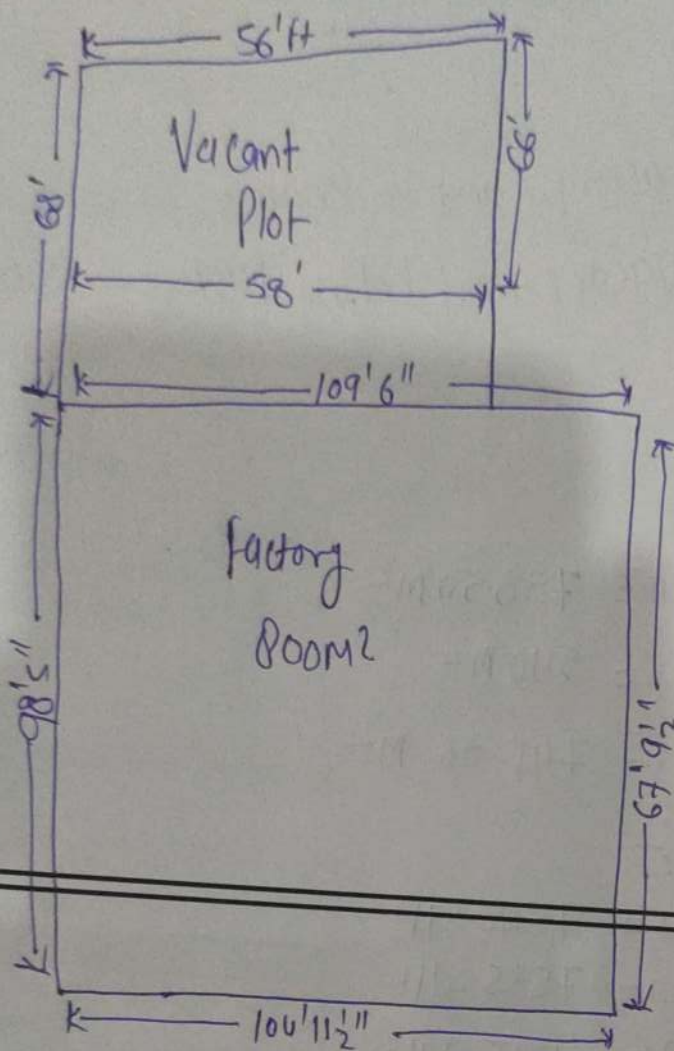 56'ft
68'
Vacant
Plot
66'
58'
109'6"
Factory
800M2
98'5"
67'9½"